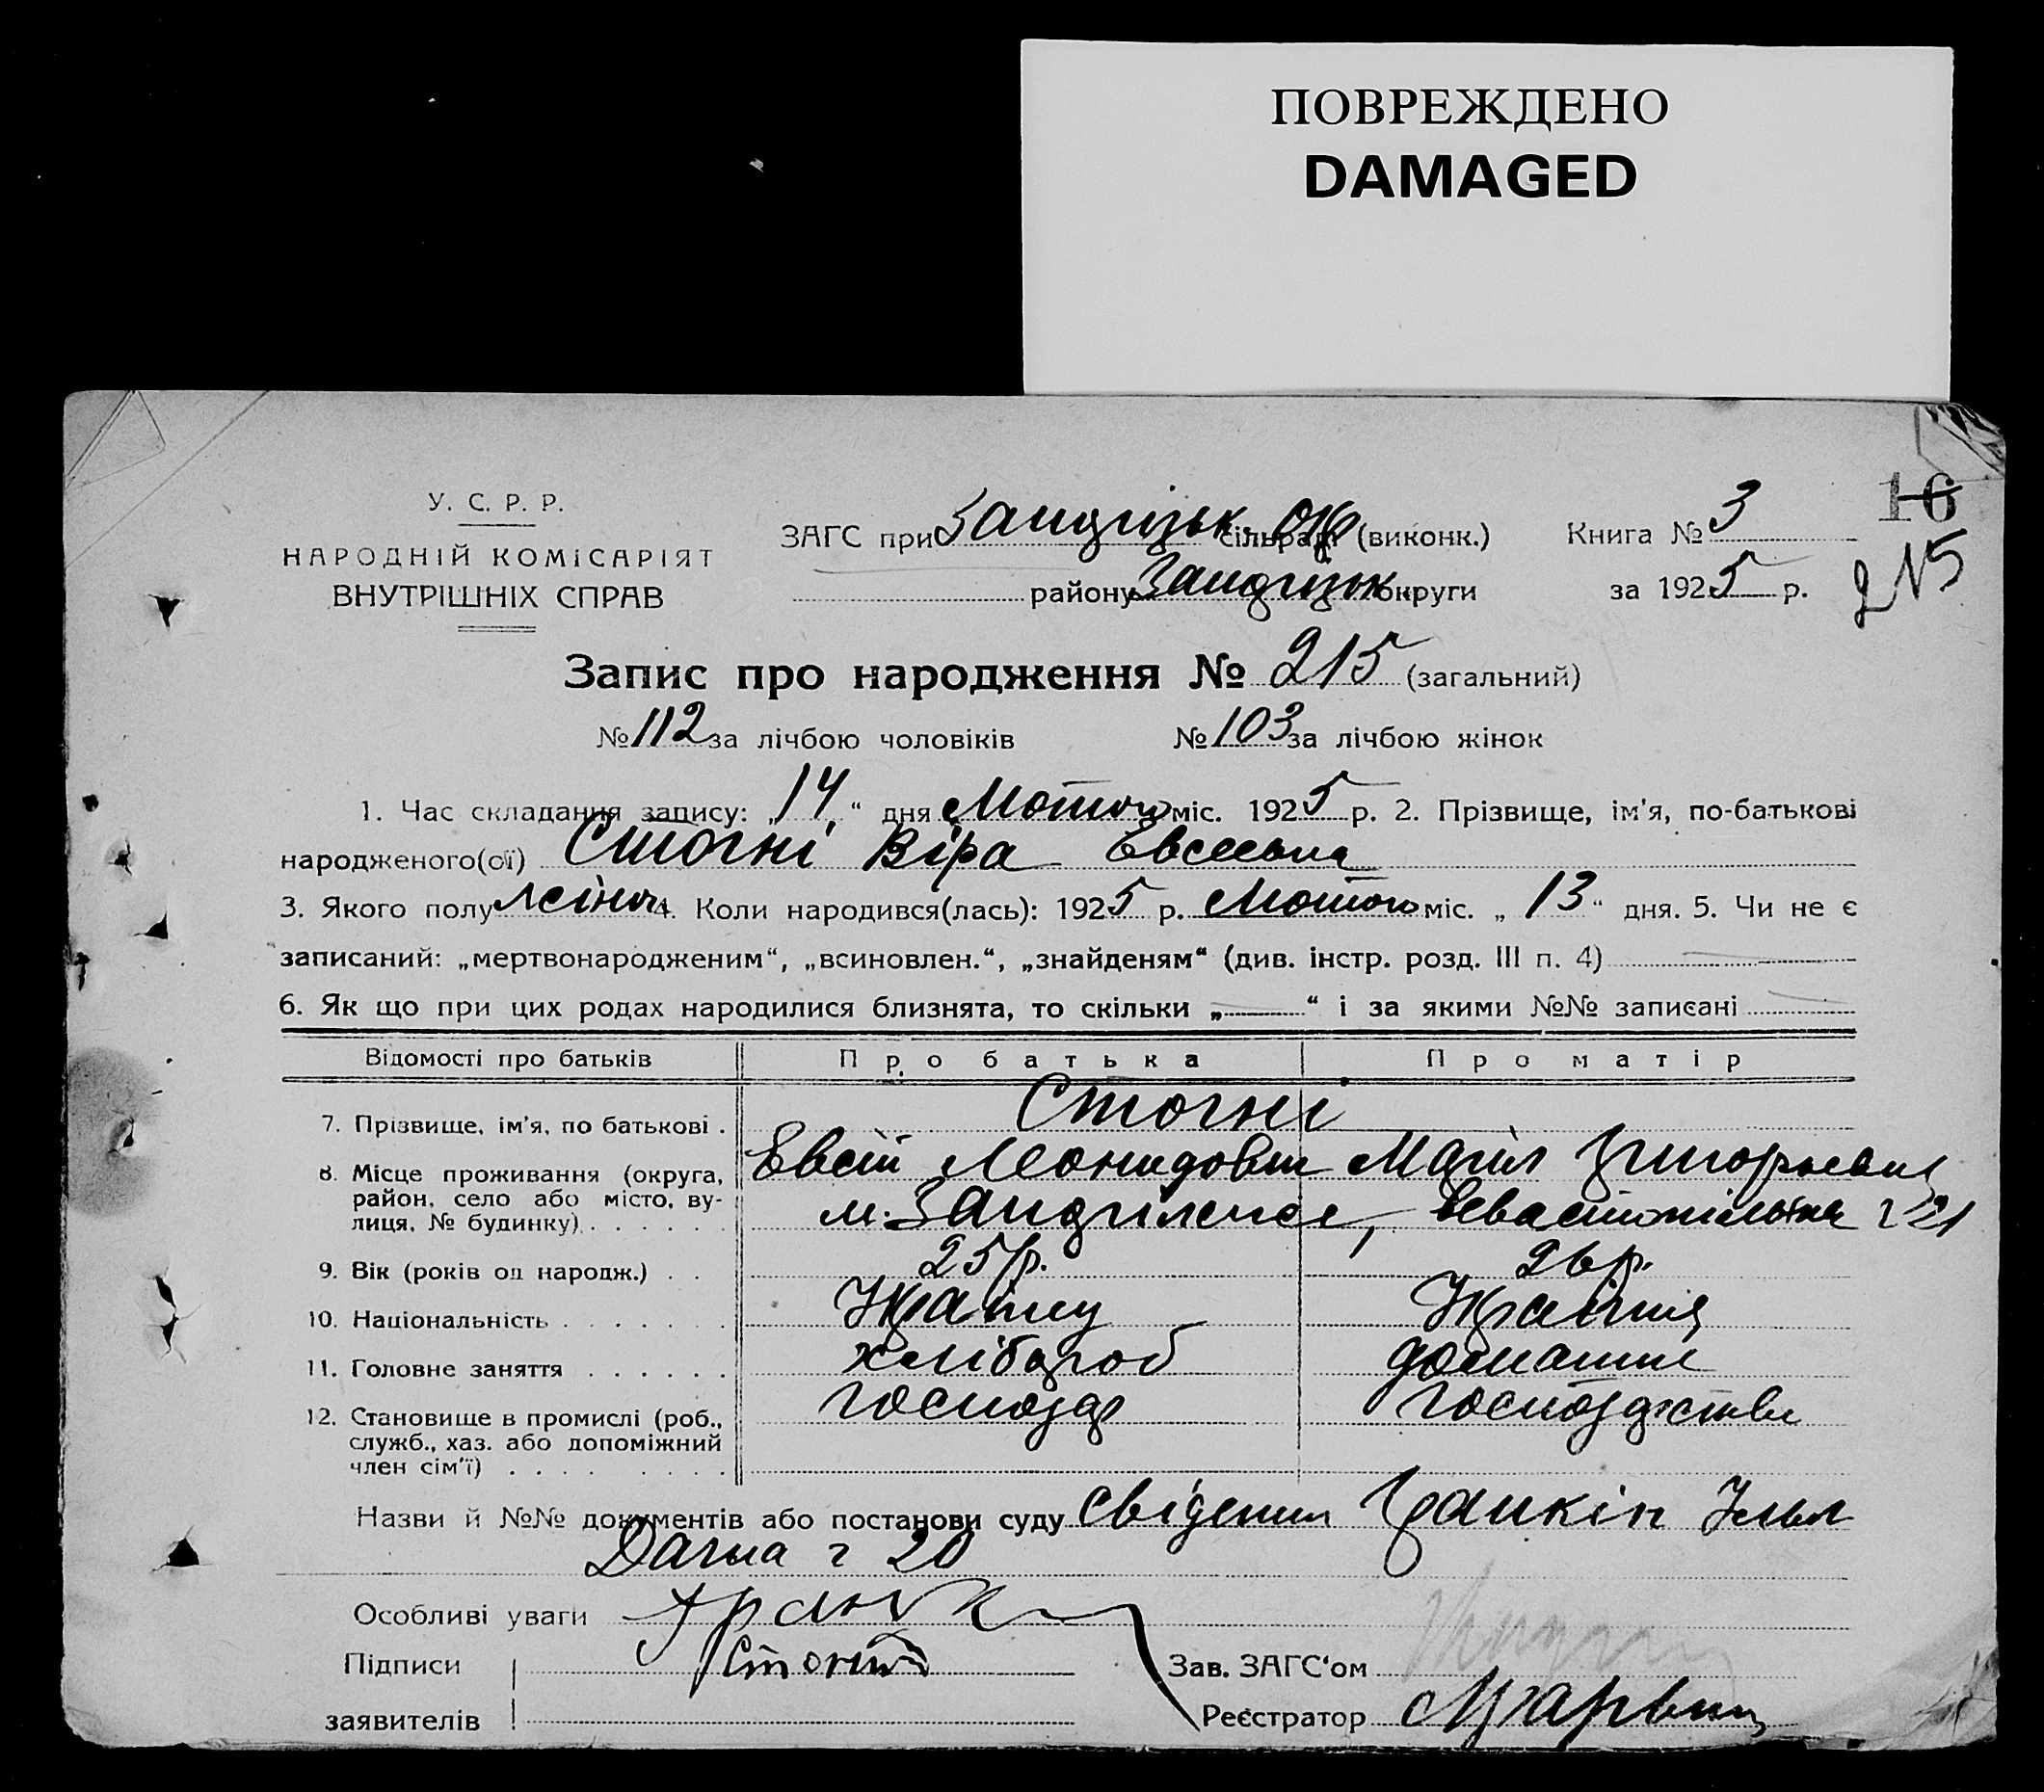 ПОВРЕЖДЕНО
DAMAGED
16
У. С. Р. Р.
НАРОДНІЙ КОМІСАРІЯТ
ВНУТРІШНІХ СПРАВ
ЗАГС при сільраді (виконк.)
району округи
Книга № 3
за 1925 р.
Запис про народження № 215 (загальний)
№ 112 за лічбою чоловіків № 103 за лічбою жінок
1. Час складання запису: „14“ дня Лютого міс. 1925 р. 2. Прізвище, ім'я, по-батькові
народженого(ої) Стогні Віра Евсеевна
3. Якого полу жіноч 4. Коли народився(лась): 1925 р. Лютого міс. „13“ дня. 5. Чи не є
записаний: „мертвонародженим“, „всиновлен.“, „знайденям“ (див. інстр. розд. III п. 4)
6. Як що при цих родах народилися близнята, то скільки „ “ і за якими №№ записані
Відомості про батьків Про батька Про матір
7. Прізвище, ім'я, по батькові . Стогні
Евсій Леонидович Марія Григорьевна
8. Місце проживання (округа,
район, село або місто, ву-
лиця, № будинку) . . . . . . м. 21
9. Вік (років од народж.) . . 25 р. 26 р.
10. Національність . . . . . . .
11. Головне заняття . . . . . . хлібороб домашне
12. Становище в промислі (роб., господар господарства
служб., хаз. або допоміжний
член сім'ї) . . . . . . . .
Назви й №№ документів або постанови суду
20
Особливі уваги
Підписи
заявителів
Зав. ЗАГС'ом
Реєстратор